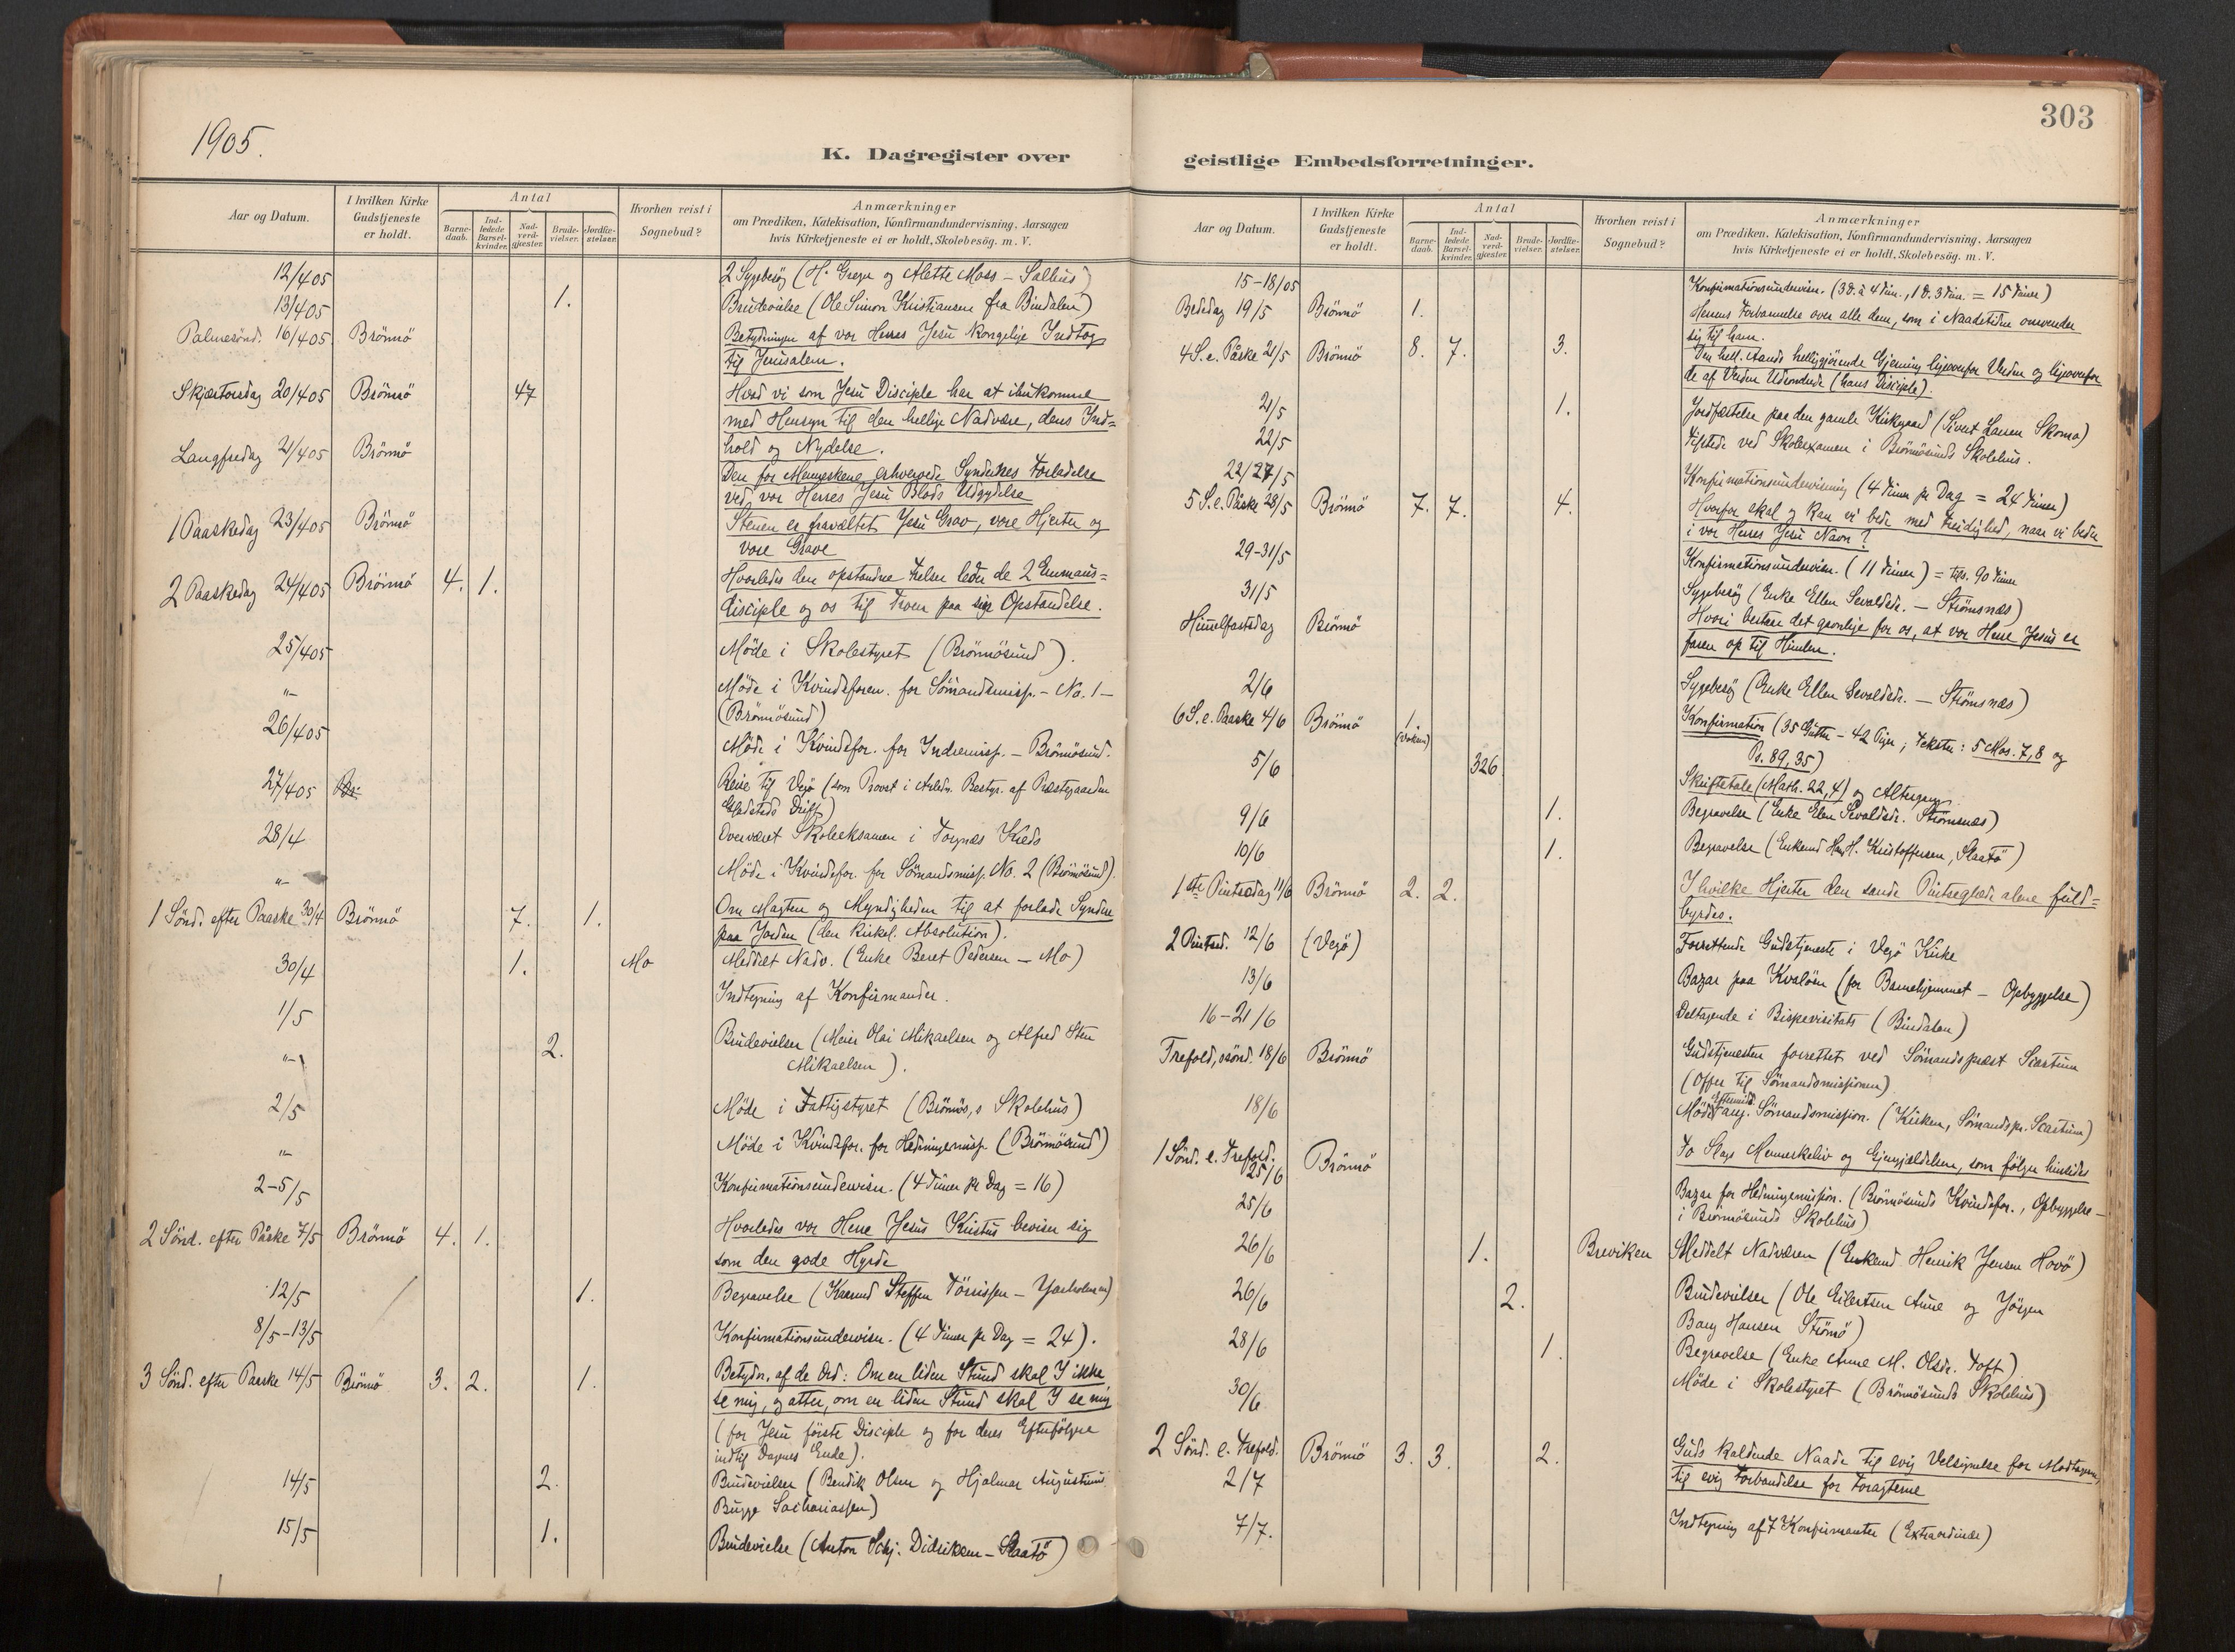 1905.
K. Dagregister over
Aar og Datum.
I hvilken Kirke Gudstjeneste er holdt.
Antal
Barne-daab.
Ind-ledede Barsel-kvinder.
Nad-verd-gjæster.
Brude-vielser.
Jordfæ-stelser.
Hvorhen reist i Sognebud?
Anmærkninger
om Prædiken, Katekisation, Konfirmandundervisning, Aarsagen
hvis Kirketjeneste ei er holdt, Skolebesög. m. V.
12/4 05 2 Sygebesög (H. Grege og Alette Moss - Salhus)
13/4 05 1. Brudevielse (Ole Simon Kristiansen fra Bindalen)
Palmesönd. 16/4 05 Brönnö Betydningen af vor Herres Jesu kongelige Indtog
til Jerusalem.
Skjærtorsdag 20/4 05 Brönnö 47 Hvad vi som Jesu Disciple har at ihukomme
med Hensyn til den hellige Nadvere, dens Ind=
hold og Nydelse.
Langfredag 21/4 05 Brönnö Den for Menneskene erhvervede Syndernes Forladelse
ved vor Herres Jesu Blods Udgydelse
1 Paaskedag 23/4 05 Brönnö Stenen er fravæltet Jesu Grav, vore Hjerter og
vore Grave
2 Paaskedag 24/4 05 Brönnö 4. 1. Hvorledes den opstandne Frelser leder de 2 Emmaus=
disciple og os til Troen paa sin Opstandelse.
25/4 05 Möde i Skolestyret (Brönnösund).
"- Möde i Kvindeforen. for Sömandsmiss. - No. 1 -
(Brönnösund)
26/4 05 Möde i Kvindefor. for Indremiss. - Brönnösund.
27/4 05 Br. Reise til Vegö (som Provst i Anledn. Bestyr. af Præstegaarden
Gladstads Drift)
28/4 Overværet Skoleeksamen i Torgnæs Kreds
"- Möde i Kvindefor. for Sömandsmiss. No. 2 (Brönnösund).
1 Sönd. efter Paaske 30/4 Brönnö 7. 1. Om Magten og Myndigheden til at forlade Synderne
paa Jorden (den kirkel. Absolution).
30/4 1. Mo Meddelt Nadv. (Enke Beret Pedersen - Mo)
1/5 Indtegning af Konfirmander.
"- 2. Brudevielser (Meier Olai Mikaelsen og Alfred Sten
Mikaelsen).
2/5 Möde i Fattigstyret (Brönnös,s Skolehus)
"- Möde i Kvindefor. for Hedningemiss. (Brönnösund)
2-5/5 Konfirmationsundervisn. (4 Timer pr Dag = 16)
2 Sönd. efter Påske 7/5 Brönnö 4. 1. Hvorledes vor Herre Jesus Kristus beviser sig
som den gode Hyrde
12/5 1. Begravelse (Kaarmd Steffen Tönissen - )
8/5-13/5 Konfirmationsundervisn. (4 Timer pr Dag = 24).
3 Sönd. efter Paaske 14/5 Brönnö 3. 2. 1. Betydn. af de Ord: Om en liden Stund skal I ikke
se mig, og atter, om en liden Stund skal I se mig
(for Jesu förste Disciple og for deres Efterfölgere
indtil Dagenes Ende).
14/5 2. Brudevielser (Bendik Olsen og Hjalmar Augustinus
Bugge Sachariassen)
15/5 1. Brudevielse (Anton Schj. Didriksen - Slaatö)
303
geistlige Embedsforretninger.
Aar og Datum.
I hvilken Kirke Gudstjeneste er holdt.
Antal
Barne-daab.
Ind-ledede Barsel-kvinder.
Nad-verd-gjæster.
Brude-vielser.
Jordfæ-stelser.
Hvorhen reist i Sognebud?
Anmærkninger
om Prædiken, Katekisation, Konfirmandundervisning, Aarsagen
hvis Kirketjeneste ei er holdt, Skolebesög. m. V.
15-18/05 Konfirmationsundervisn. (3 d. à 4 Tim., 1 d. 3 Tim. = 15 Timer)
Bededag 19/5 Brönnö 1. Herrens Forbarmelse over alle dem, som i Naadetiden omvender
sig til ham.
4 S. e. Påske 21/5 Brönnö 8. 7. 3. Den hell. Aands helliggjörende Gjerning ligeoverfor Verden og ligeoverfor
de af Verden Udvandrede (hans Disciple).
21/5 1. Jordfæstelse paa den gamle Kirkegaard (Sivert Larsen Skomo)
22/5 Tilstede ved Skoleexamen i Brönnösunds Skolehus.
22/27/5 Konfirmationsundervisning (4 Timer pr Dag = 24 Timer)
5 S. e. Påske 28/5 Brönnö 7. 7. 4. Hvorfor skal og kan vi bede med Fridighed, naar vi beder
i vor Herres Jesu Navn?
29-31/5 Konfirmationsundervisn. (11 Timer) = tils. 90 Timer
31/5 Sygebesög (Enke Ellen Sevaldsdr. - Strömsnæs)
Himmelfartsdag Brönnö Hvori bestaar det gavnlige for os, at vor Herre Jesus er
faren op til Himlen.
2/6 Sygebesög (Enke Ellen Sevaldsdr. - Strömsnæs)
6 S. e. Paaske 4/6 Brönnö 1. (voksen) Konfirmation (35 Gutter - 42 Piger; Tekster: 5 Mos. 7,8 og
Ps. 89,35)
5/6 326 Skriftetale (Math. 22,4) og Altergang.
9/6 1. Begravelse (Enke Elen Sevaldsdr. Strömsnæs)
10/6 1. Begravelse (Enkemd Hans H. Kristoffersen, Slaatö)
1ste Pintsedag 11/6 Brönnö 2. 2. I hvilke Hjerter den sande Pintseglæde alene fuld=
byrdes.
2 Pintsed. 12/6 (Vegö) Forrettende Gudstjeneste i Vegö Kirke
13/6 Bazar paa Kvalöen (for Barnehjemmet - Opbyggelse)
16-21/6 Deltagende i Bispevisitats (Bindalen)
Trefold,ssönd. 18/6 Brönnö Gudstjenesten forrettet ved Sömandspræst Scastrum
(Offer til Sömandsmissionen)
18/6 Möde Eftermidd. ang. Sömandsmission. (Kirken, Sömandspr. Scastrum)
1 Sönd. e. Trefold. 25/6 Brönnö To Slags Menneskeliv og Gjengjældelsen, som fölger hinsides
25/6 Bazar for Hedningemission. (Brönnösunds Kvindefor., Opbyggelse -
i Brönnösunds Skolehus)
26/6 1. Breviken Meddelt Nadveren (Enkemd Henrik Jensen Havö)
26/6 2. Brudevielser (Ole Eilertsen Aune og Jörgen
Bang Hansen Strömö)
28/6 1. Begravelse (Enke Anne M. Olsdr. Toft)
30/6 Möde i Skolestyret (Brönnösunds Skolehus)
2 Sönd. e. Trefold. 2/7 Brönnö 3. 3. 2. Guds kaldende Naade til evig Velsignelse for Modtagerne,
til evig Forbandelse for Foragterne
7/7. Indtegning af 7 Konfirmanter (Extraordinære)